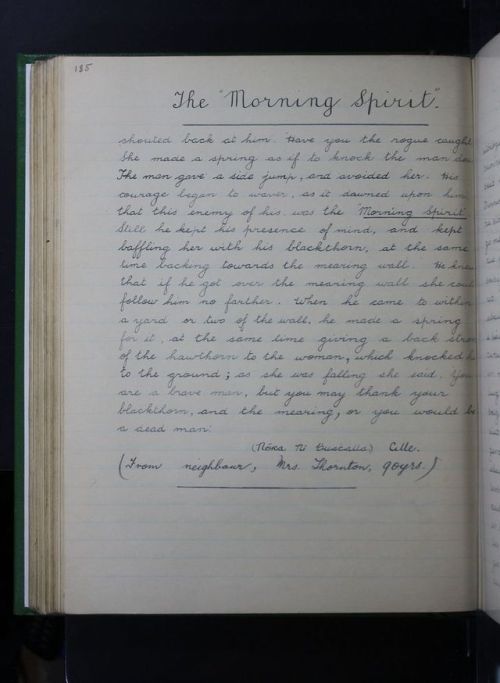 185
The "Morning Spirit".
shouted back at him. "Have you the rogue caught
She made a spring as if to knock the man dow
The man gave a side jump, and avoided her. His
courage began to waver, as it dawned upon him
that this enemy of his was the "Morning Spirit"
Still he kept his presence of mind, and kept
baffling her with his blackthorn, at the same
time backing towards the mearing wall. He knew
that if he got over the mearing wall she coul
follow him no farther. When he came to within
a yard or two of the wall, he made a spring
for it, at the same time giving a back stro
of the hawthorn to the woman, which knocked h
to the ground; as she was falling she said. "You
are a brave man, but you may thank your
blackthorn, and the mearing, or you would be
a dead man."
(Nóra Ní) Cille.
(From neighbour, Mrs. Thornton, 90yrs.)